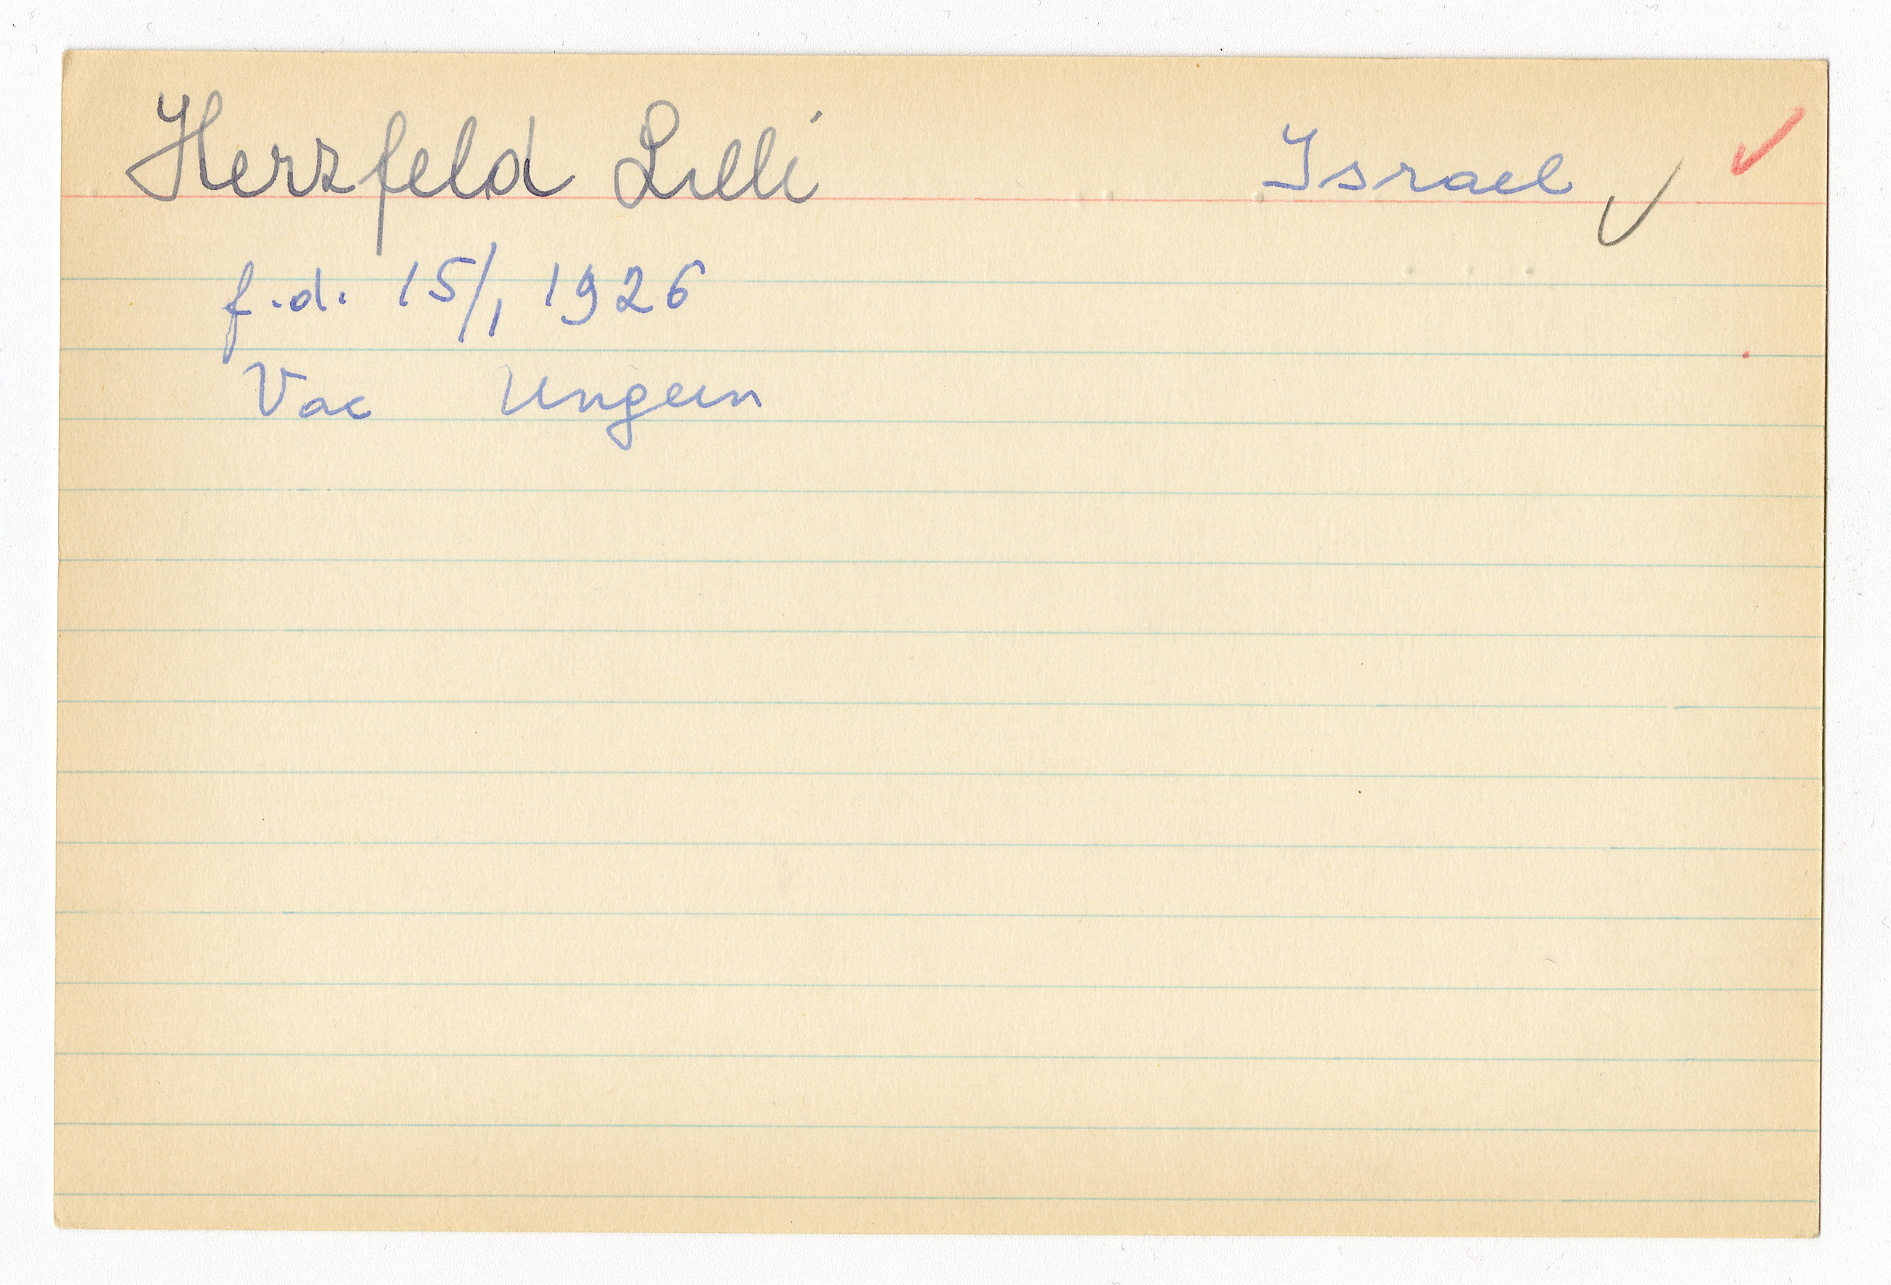 Herzfeld Lilli Israel ✓ ✓
f.d. 15/1 1926
Vac Ungern